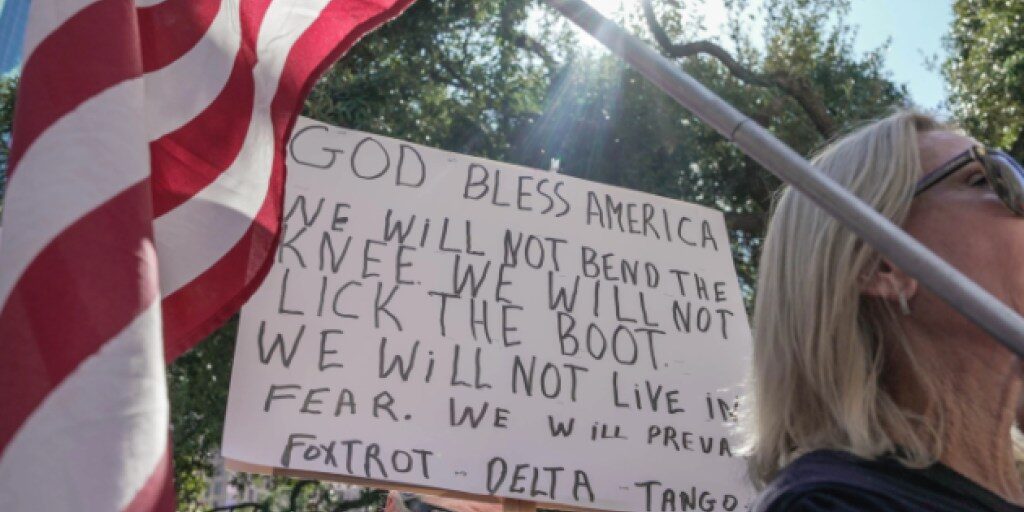 GOD BLESS AMERICA
WE WILL NOT BEND THE
KNEE WE WILL NOT
LICK THE BOOT.
WE WILL NOT LIVE IN
FEAR. WE WILL PREVA
FOXTROT - DELTA - TANGO